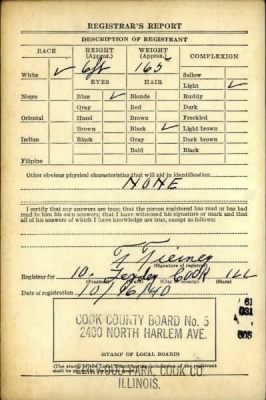 REGISTRAR'S REPORT
DESCRIPTION OF REGISTRANT
RACE HEIGHT (Approx.) WEIGHT (Approx.) COMPLEXION
White ✓ 6ft 165 Sallow
EYES HAIR Light ✓
Negro Blue ✓ Blonde Ruddy
Gray Red Dark
Oriental Hazel Brown Freckled
Brown Black ✓ Light brown
Indian Black Gray Dark brown
Bald Black
Filipino
Other obvious physical characteristics that will aid in identification
NONE
I certify that my answers are true; that the person registered has read or has had
read to him his own answers; that I have witnessed his signature or mark and that
all of his answers of which I have knowledge are true, except as follows:
F Tierney
(Signature of registrar)
Registrar for 10 Cook ILL
(Precinct) (City or county) (State)
Date of registration 10/16/40
COOK COUNTY BOARD No. 5
2430 NORTH HARLEM AVE.
(STAMP OF LOCAL BOARD)
(The stamp of the Local Board
shall be
ELMWOOD PARK, COOK CO.
ILLINOIS.